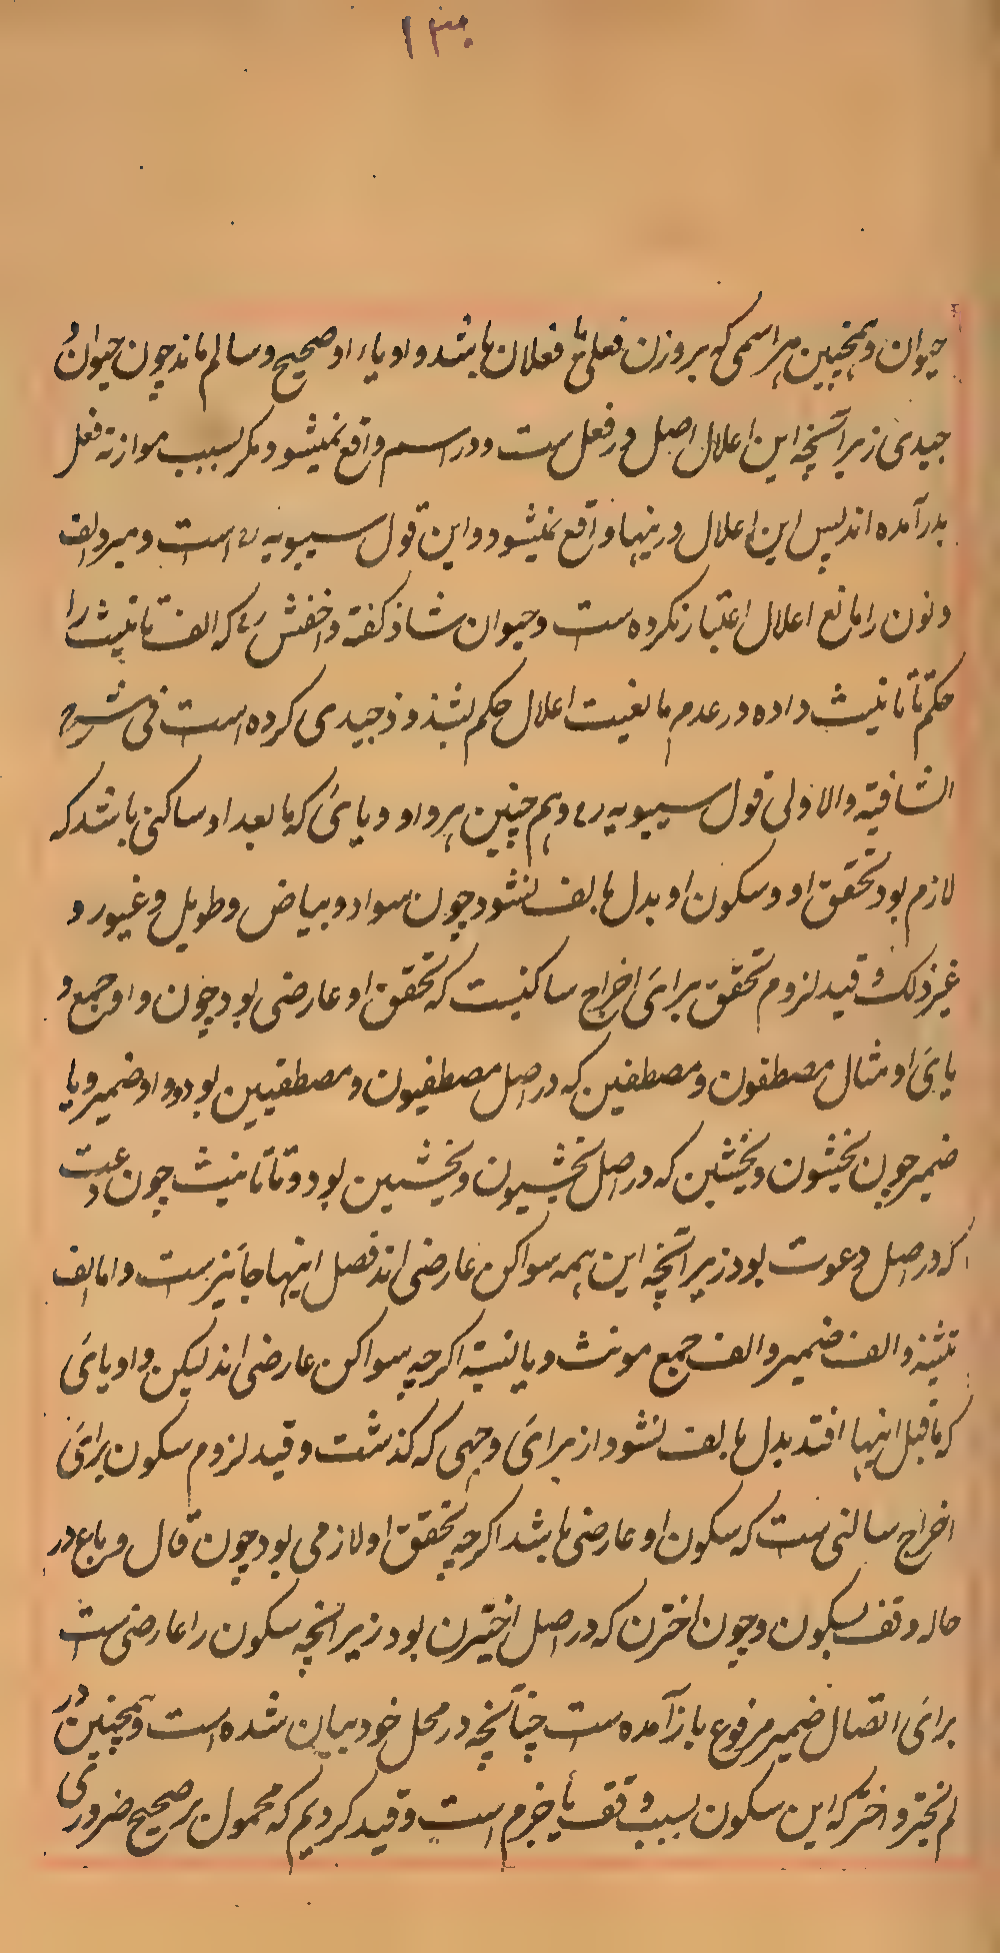 ۱۳۰
حیوان و همچنین هر اسمی که بروزن فعلی یا فعلان باشد واو یاء او صحیح و سالم ماند چون حیوان و
حیدی زیرا آنچه این اعلال اصل در فعل ست و در اسم واقع نمیشود مگر بسبب موازنه فعل
بدر آمده اند پس این اعلال درینها واقع نمیشود و این قول سیبویه رح است و مبرد الف
و نون را مانع اعلال اعتبار نکرده ست و حیوان شاذ گفته و اخفش رح که الف تانیث را
حکم تا تانیث داده در عدم مانعیت اعلال حکم بشذوذ حیدی کرده است فی شرح
الشافیة والاولی قول سیبویه رح و هم چنین هر واو و یای که مابعد او ساکنی باشد که
لازم بود تحقق او و سکون او بدل بالف نشود چون سواد و بیاض و طویل و غیور و
غیر ذلک و قید لزوم تحقق برای اخراج ساکنیست که تحقق او عارضی بود چون واو جمع و
یای او مثال مصطفون و مصطفین که در اصل مصطفیون و مصطفیین بود و واو ضمیر و یا
ضمیر چون یخشون و یخشین که در اصل یخشیون و یخشیین بود و تا تانیث چون دعت
که در اصل دعوت بود زیرا آنچه این همه سواکن عارضی اند فصل اینها جائز ست و اما الف
تثنیه و الف ضمیر و الف جمع مونث و یا نسبة اگرچه سواکن عارضی اند لیکن واو یای
که ماقبل اینها افتد بدل بالف نشود از برای وجهی که گذشت و قید لزوم سکون برای
اخراج ساکنی ست که سکون او عارضی باشد اگرچه تحقق او لازمی بود چون قال و باع در
حاله وقف بسکون و چون اخترن که در اصل اختیرن بود زیرا آنچه سکون را عارضی ست
برای اتصال ضمیر مرفوع بازآمده ست چنانچه در محل خود بیان شده است و همچنین در
لم یختر و اختر که این سکون بسبب وقف یا جزم است و قید کردیم که محمول بر صحیح ضروری